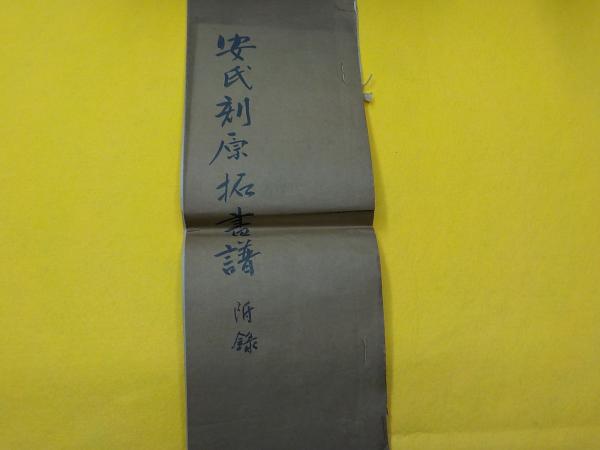 安氏刻原拓書譜
附錄